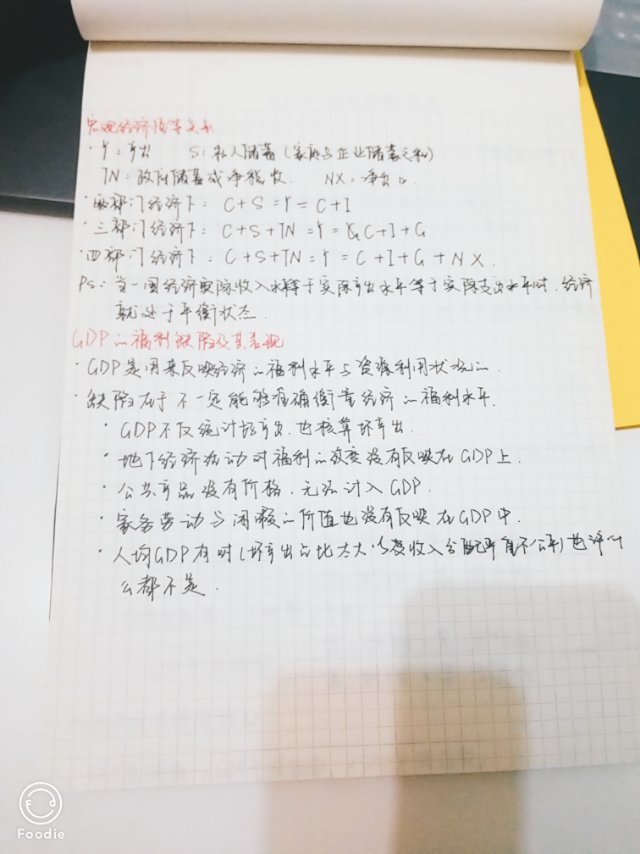 宏观经济恒等关系
· Y:产出 S:私人储蓄(家庭与企业储蓄之和)
TN:政府储蓄或净税收. NX:净出口
· 两部门经济下: C+S=Y=C+I
· 三部门经济下: C+S+TN=Y=C+I+G
· 四部门经济下: C+S+TN=Y=C+I+G+NX.
Ps:当一国经济实际收入水平等于实际产出水平等于实际支出水平时,经济
就处于平衡状态.
GDP的福利缺陷及其表现
· GDP是用来反映经济的福利水平与资源利用状况的.
· 缺陷在于不一定能够准确衡量经济的福利水平.
· GDP不仅统计好产出,也核算坏产出.
· 地下经济活动对福利的改变没有反映在GDP上.
· 公共产品没有价格,无法计入GDP.
· 家务劳动与闲暇的价值也没有反映在GDP中.
· 人均GDP有时(坏产出占比太大以及收入分配严重不公平)也许什
么都不是.
Foodie